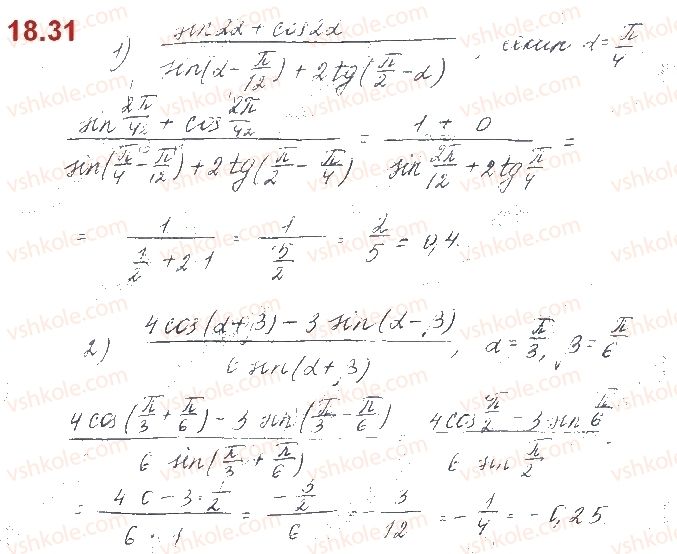 18.31
1) (sin 2α + cos 2α) / (sin(α − π/12) + 2 tg(π/2 − α)), α = π/4
(sin 2π/4 + cos 2π/4) / (sin(π/4 − π/12) + 2 tg(π/2 − π/4)) = (1 + 0) / (sin 2π/12 + 2 tg π/4) =
= 1 / (1/2 + 2·1) = 1 / (5/2) = 2/5 = 0,4.
2) (4 cos(α + β) − 3 sin(α − β)) / (6 sin(α + β)), α = π/3, β = π/6
(4 cos(π/3 + π/6) − 3 sin(π/3 − π/6)) / (6 sin(π/3 + π/6)) (4 cos π/2 − 3 sin π/6) / (6 sin π/2)
= (4·0 − 3·1/2) / (6·1) = (−3/2) / 6 = −3/12 = −1/4 = −0,25